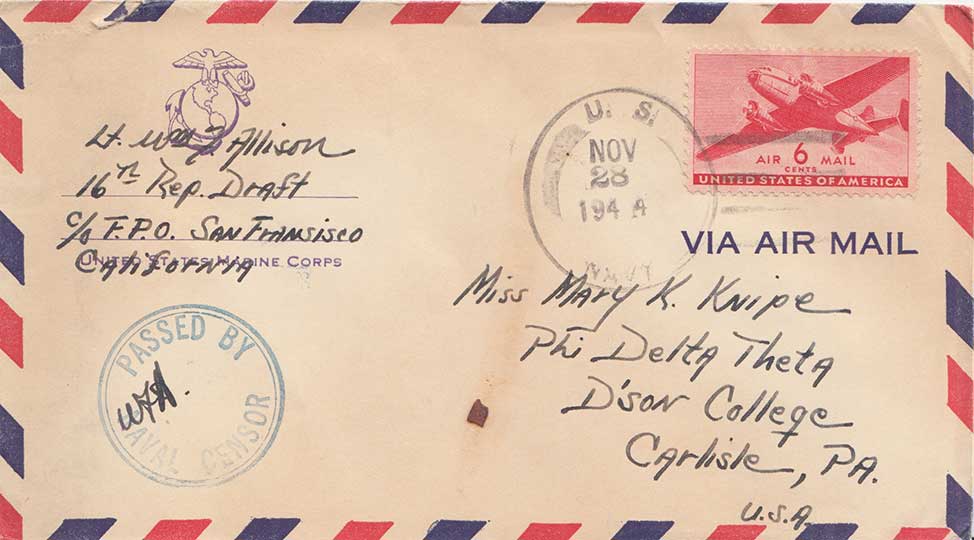 Lt. Wm F. Allison
16th Rep. Draft
c/o F.P.O. San Fransisco
California
United States Marine Corps
U. S.
NOV
28
194 4
NAVY
AIR 6 MAIL
CENTS
UNITED STATES OF AMERICA
VIA AIR MAIL
Miss Mary K. Knipe
Phi Delta Theta
D'son College
Carlisle, PA.
U.S.A.
PASSED BY
WFA.
NAVAL CENSOR